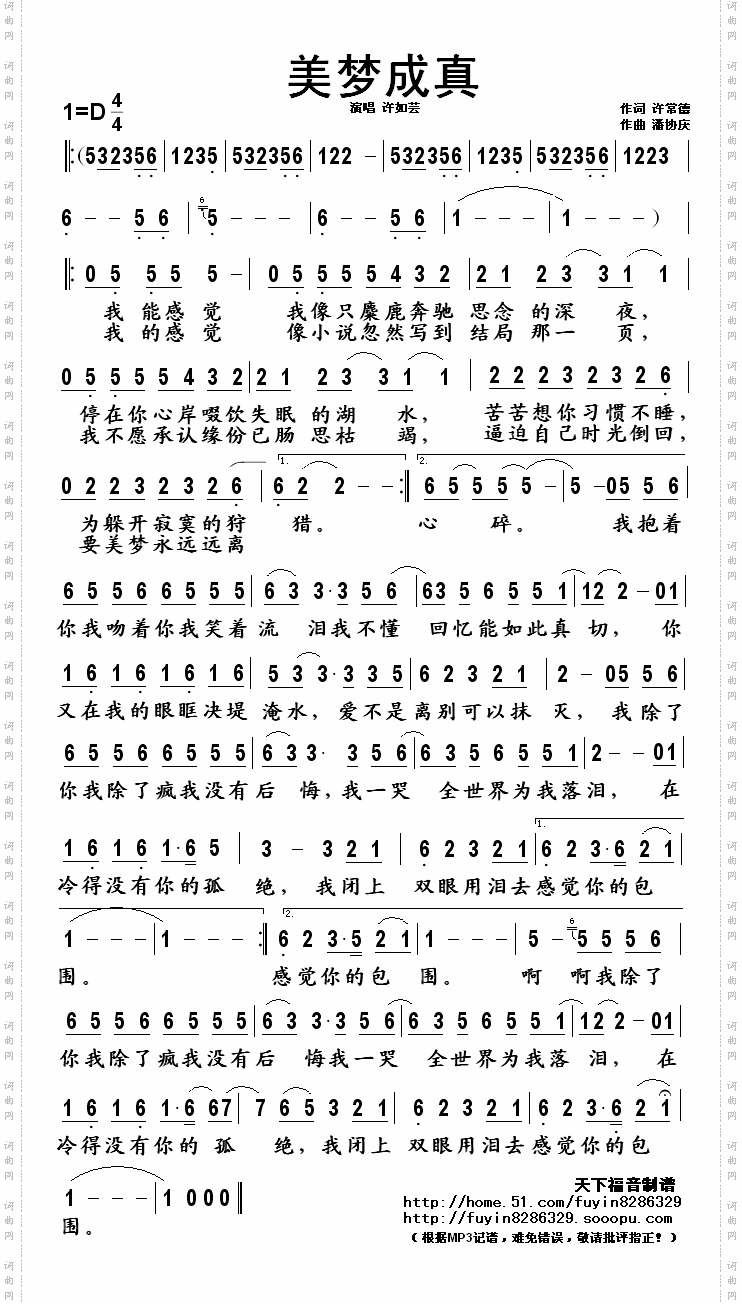 美梦成真
1=D 4/4
演唱 许如芸
作词 许常德
作曲 潘协庆
‖:(532356 | 1235 | 532356 | 122 － | 532356 | 1235 | 532356 | 1223
6 - - 5 6 | 6 5 - - - | 6 - - 5 6 | 1 - - - | 1 - - - )
‖: 0 5 5 5 5 - | 0 5 5 5 5 4 3 2 | 2 1 2 3 3 1 1
我能感觉 我像只麋鹿奔驰 思念的深夜,
我的感觉 像小说忽然写到 结局那一页,
0 5 5 5 5 4 3 2 | 2 1 2 3 3 1 1 | 2 2 2 3 2 3 2 6
停在你心岸啜饮失眠的湖水, 苦苦想你习惯不睡,
我不愿承认缘份已肠思枯竭, 逼迫自己时光倒回,
0 2 2 3 2 3 2 6 | 1. 6 2 2 - - :‖ 2. 6 5 5 5 5 - | 5 - 05 5 6
为躲开寂寞的狩猎。 心碎。 我抱着
要美梦永远远离
6 5 5 6 6 5 5 5 | 6 3 3·3 5 6 | 63 5 6 5 5 1 | 12 2 - 01
你我吻着你我笑着流 泪我不懂 回忆能如此真切, 你
1 6 1 6 1 6 1 6 | 5 3·3 3 3 5 | 6 2 3 2 1 | 2 - 05 5 6
又在我的眼眶决堤 淹水, 爱不是离别可以抹灭, 我除了
6 5 5 6 6 5 5 5 | 6 3 3· 3 5 6 | 6 3 5 6 5 5 1 | 2 - - 01
你我除了疯我没有后悔,我一哭 全世界为我落泪, 在
1 6 1 6 1·6 6 5 | 3 - 3 2 1 | 6 2 3 2 1 | 1. 6 2 3·6 2 1
冷得没有你的孤绝, 我闭上 双眼用泪去感觉你的包
1 - - - | 1 - - - :‖ 2. 6 2 3·5 2 1 | 1 - - - | 5 - 6 5 5 5 6
围。 感觉你的包围。 啊 啊我除了
6 5 5 6 6 5 5 5 | 6 3 3·3 5 6 | 6 3 5 6 5 5 1 | 12 2 - 01
你我除了疯我没有后悔我一哭 全世界为我落泪, 在
1 6 1 6 1·6 67 | 7 6 5 3 2 1 | 6 2 3 2 1 | 6 2 3·6 2 1
冷得没有你的孤绝,我闭上 双眼用泪去感觉你的包
1 - - - | 1 0 0 0 ‖
围。
天下福音制谱
http://home.51.com/fuyin8286329
http://fuyin8286329.sooopu.com
（根据MP3记谱，难免错误，敬请批评指正！）